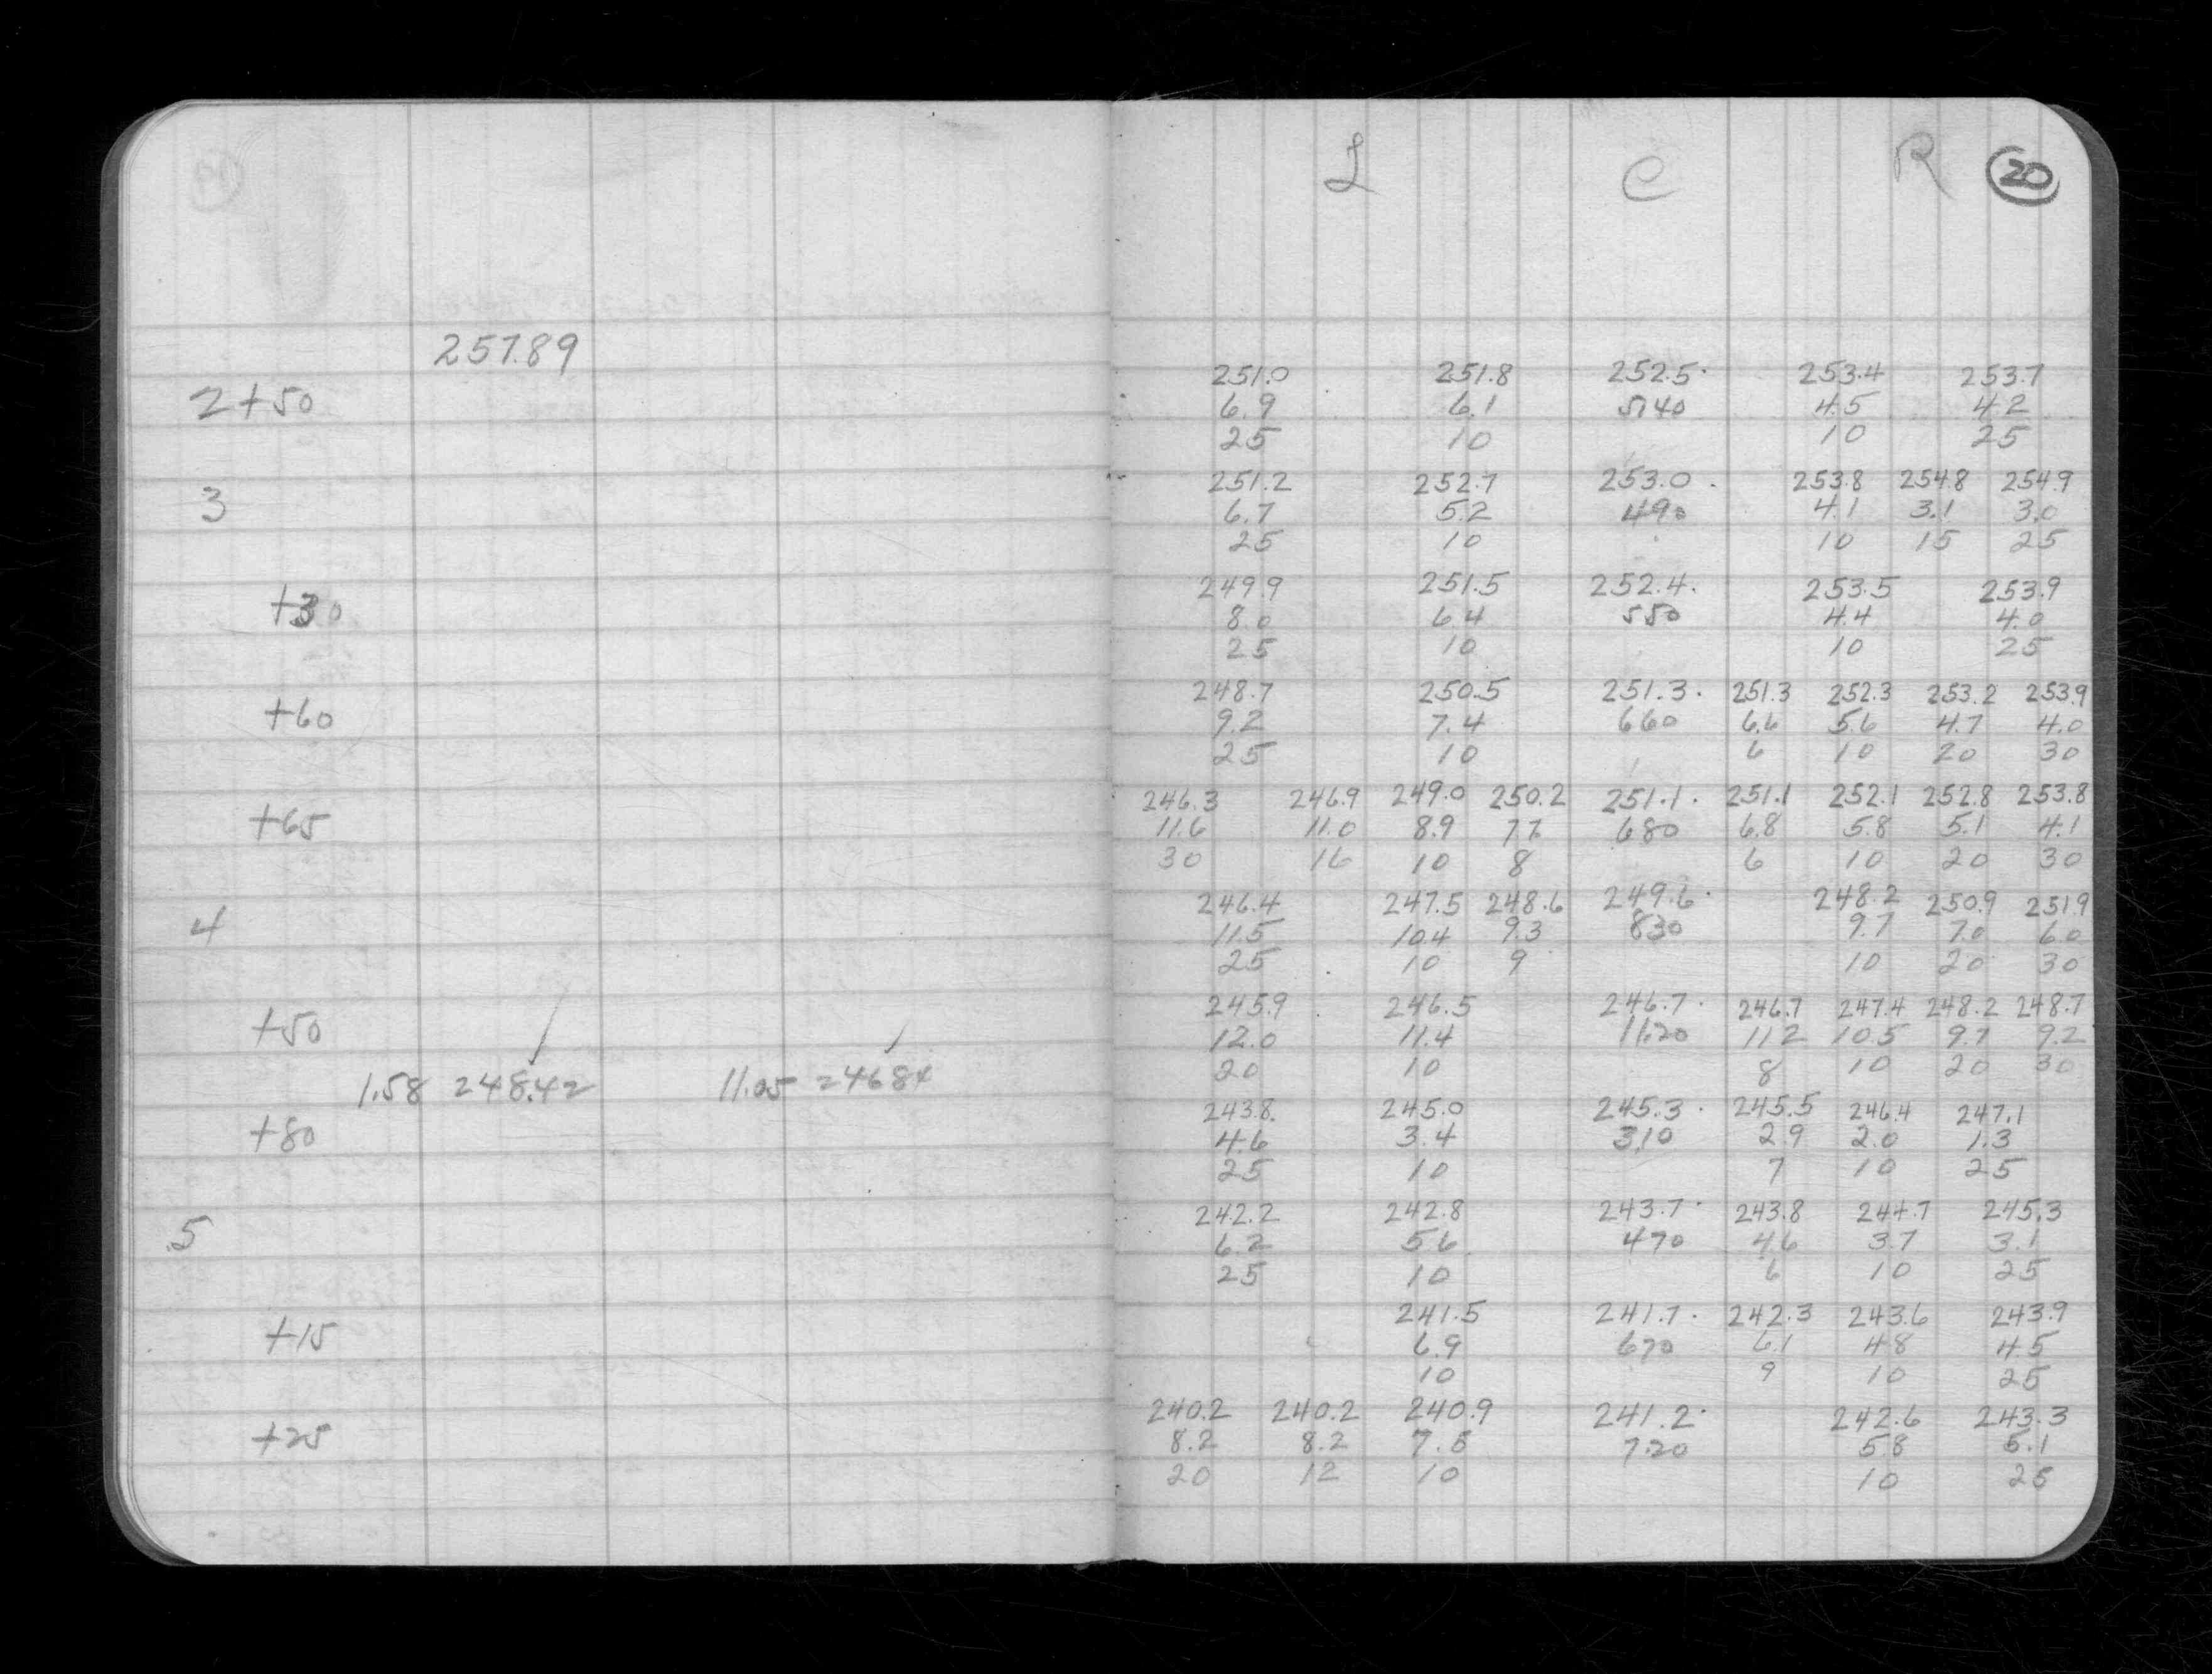 L C R 20
257.89
251.0 251.8 252.5 253.4 253.7
2+50 6.9 6.1 5.40 4.5 4.2
25 10 10 25
251.2 252.7 253.0 253.8 254.8 254.9
3 6.7 5.2 4.90 4.1 3.1 3.0
25 10 10 15 25
249.9 251.5 252.4 253.5 253.9
+30 8.0 6.4 550 4.4 4.0
25 10 10 25
248.7 250.5 251.3 251.3 252.3 253.2 253.9
+60 9.2 7.4 660 6.6 5.6 4.7 4.0
25 10 6 10 20 30
246.3 246.9 249.0 250.2 251.1 251.1 252.1 252.8 253.8
+65 11.6 11.0 8.9 7.7 680 6.8 5.8 5.1 4.1
30 16 10 8 6 10 20 30
246.4 247.5 248.6 249.6 248.2 250.9 251.9
4 11.5 10.4 9.3 830 9.7 7.0 6.0
25 10 9 10 20 30
245.9 246.5 246.7 246.7 247.4 248.2 248.7
+50 12.0 11.4 11.20 11.2 10.5 9.7 9.2
20 10 8 10 20 30
1.58 248.42 11.05 246.84
243.8 245.0 245.3 245.5 246.4 247.1
+80 4.6 3.4 3.10 2.9 2.0 1.3
25 10 7 10 25
242.2 242.8 243.7 243.8 244.7 245.3
5 6.2 5.6 470 4.6 3.7 3.1
25 10 6 10 25
241.5 241.7 242.3 243.6 243.9
+15 6.9 670 6.1 4.8 4.5
10 9 10 25
240.2 240.2 240.9 241.2 242.6 243.3
+25 8.2 8.2 7.5 7.20 5.8 5.1
20 12 10 10 25